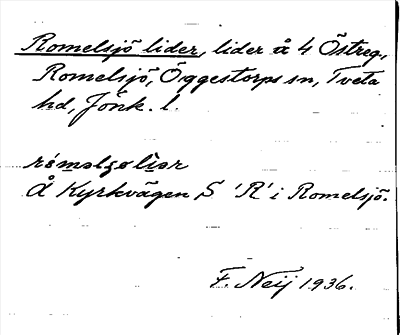 Romelsjö lider, lider å 4 Östreg.,
Romelsjö, Öggestorps sn, Tveta
hd, Jönk. l.
Å Kyrkvägen, S 'R' i Romelsjö.
F. Neij 1936.